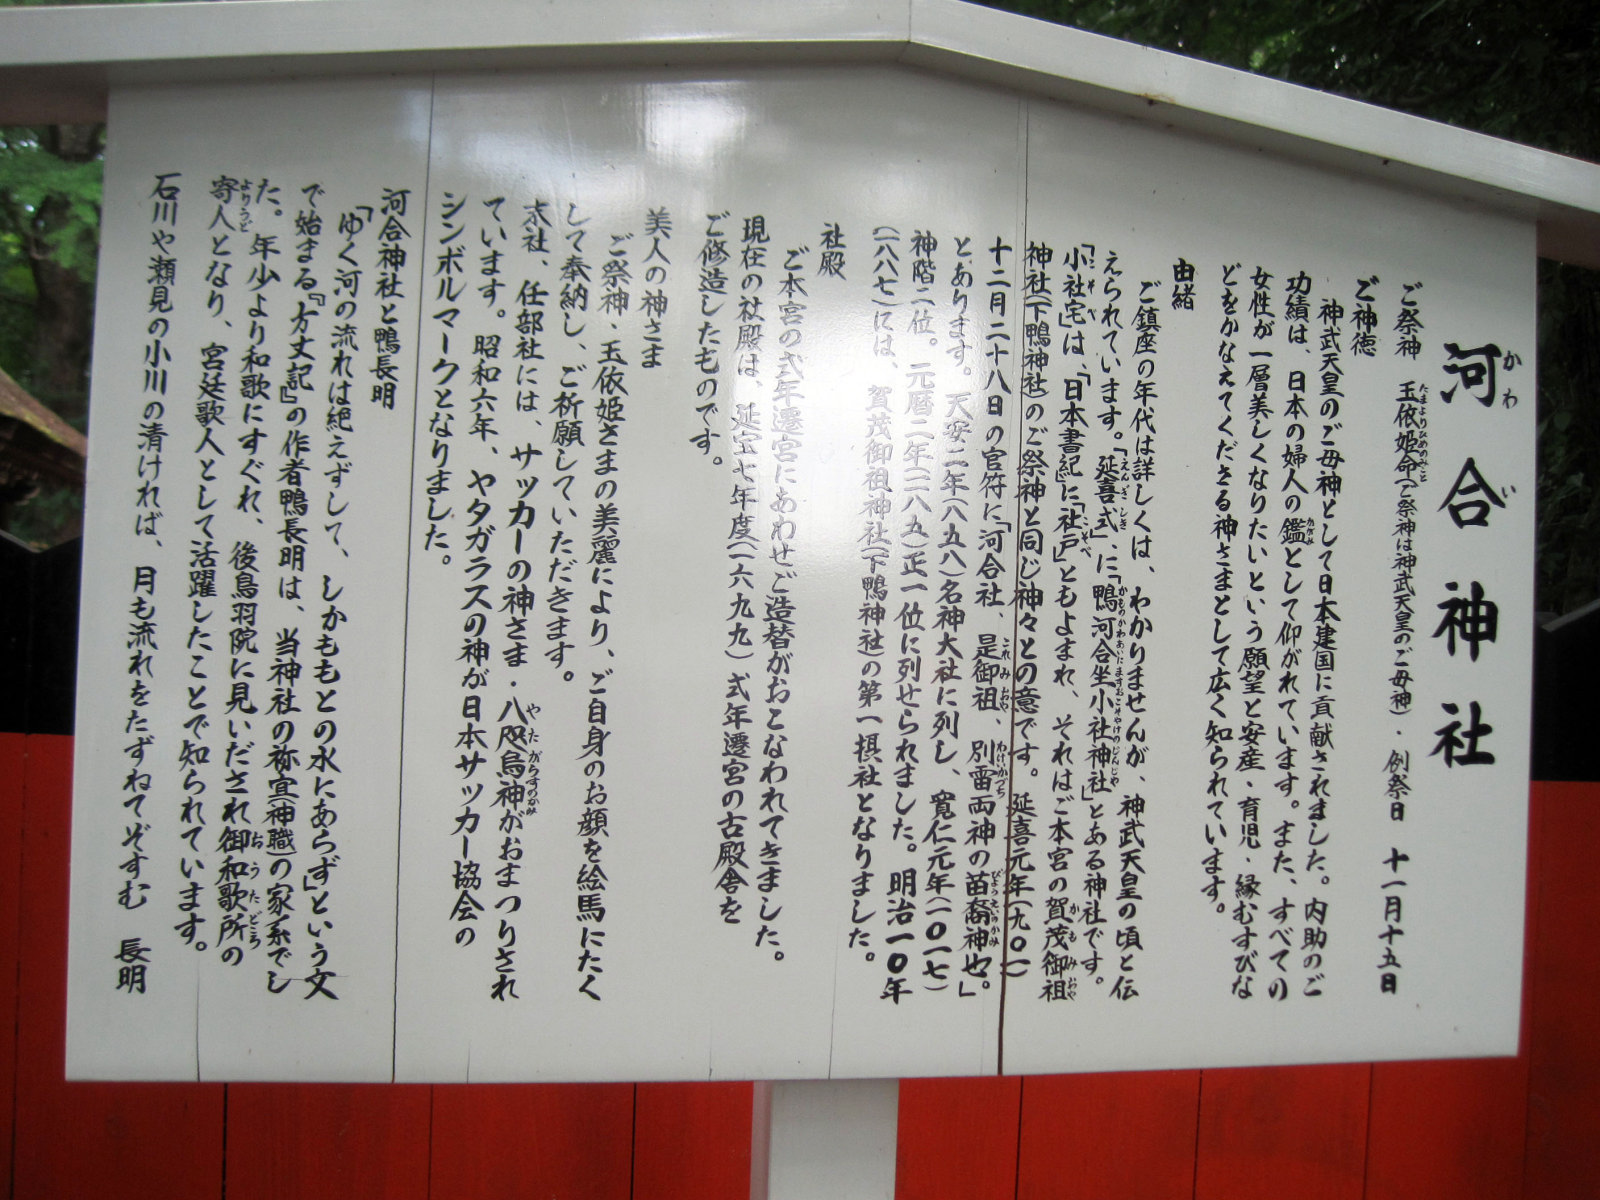 河合神社
ご祭神　玉依姫命(ご祭神は神武天皇のご母神)・例祭日　十一月十五日
ご神徳
神武天皇のご母神として日本建国に貢献されました。内助のご
功績は、日本の婦人の鑑として仰がれています。また、すべての
女性が一層美しくなりたいという願望と安産・育児・縁むすびな
どをかなえてくださる神さまとして広く知られています。
由緒
ご鎮座の年代は詳しくは、わかりませんが、神武天皇の頃と伝
えられています。「延喜式」に「鴨河合坐小社神社」とある神社です。
「小社宅」は、「日本書紀」に「社戸」ともよまれ、それはご本宮の賀茂御祖
神社(下鴨神社)のご祭神と同じ神々との意です。延喜元年(九〇一)
十二月二十八日の官符に「河合社、是御祖、別雷両神の苗裔神也。」
とあります。天安二年(八五八)名神大社に列し、寛仁元年(一〇一七)
神階一位。元暦二年(一一八五)正一位に列せられました。明治一〇年
(一八八七)には、賀茂御祖神社(下鴨神社)の第一摂社となりました。
社殿
ご本宮の式年遷宮にあわせご造替がおこなわれてきました。
現在の社殿は、延宝七年度(一六九九)式年遷宮の古殿舎を
ご修造したものです。
美人の神さま
ご祭神・玉依姫さまの美麗により、ご自身のお顔を絵馬にたく
して奉納し、ご祈願していただきます。
末社、任部社には、サッカーの神さま・八咫烏神がおまつりされ
ています。昭和六年、ヤタガラスの神が日本サッカー協会の
シンボルマークとなりました。
河合神社と鴨長明
「ゆく河の流れは絶えずして、しかももとの水にあらず」という文
で始まる『方丈記』の作者鴨長明は、当神社の祢宜(神職)の家系でし
た。年少より和歌にすぐれ、後鳥羽院に見いだされ御和歌所の
寄人となり、宮廷歌人として活躍したことで知られています。
石川や瀬見の小川の清ければ、月も流れをたずねてぞすむ　長明